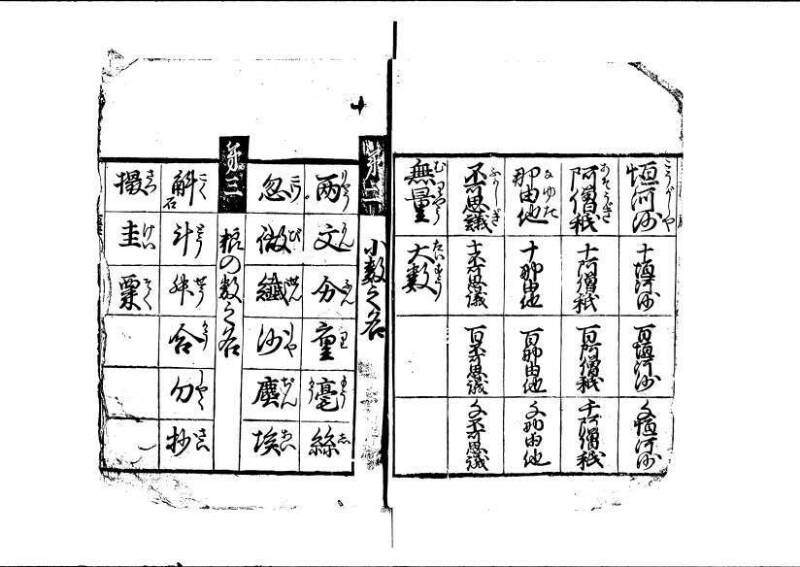 恒河沙 十恒河沙 百恒河沙 千恒河沙
阿僧祇 十阿僧祇 百阿僧祇 千阿僧祇
那由他 十那由他 百那由他 千那由他
不可思議 十不可思議 百不可思議 千不可思議
無量 大数
第二 小数之名
両 文 分 釐 毫 絲
忽 微 纖 沙 塵 埃
第三 粮の数之名
斛 石 斗 升 合 勺 抄
撮 圭 粟